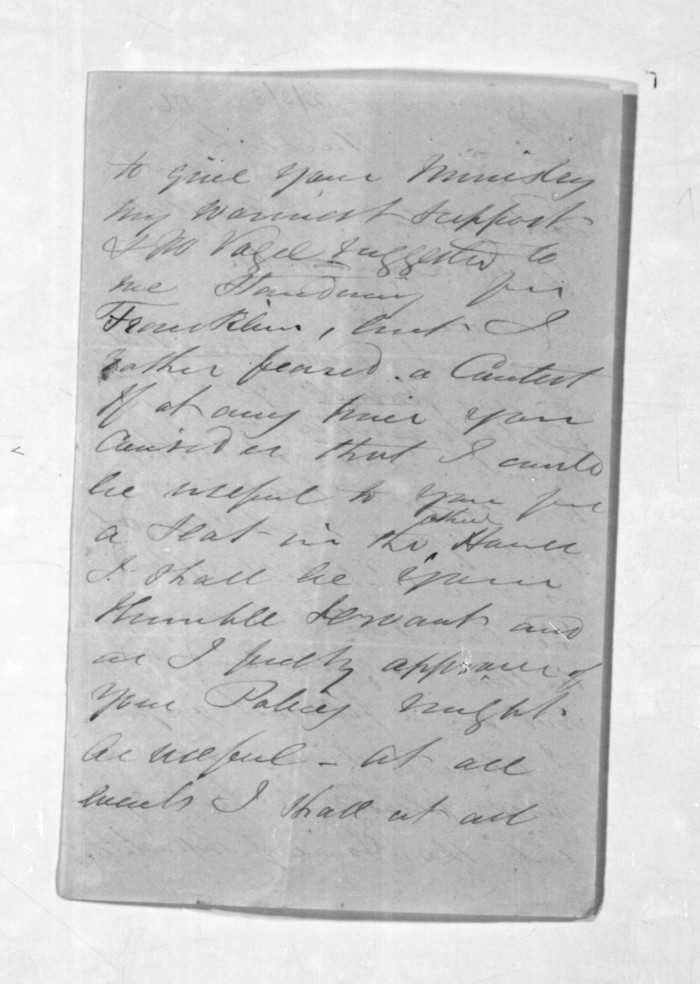 to give your Ministry
my warmest support
& Mr Vogel suggested to
me Standing for
Franklin, but I
rather feared a Contest
If at any time you
Consider that I could
be useful to you for
a seat in the other House
I shall be your
Humble Servant and
as I fully approve of
your Policy might
be useful - at all
events I shall at all